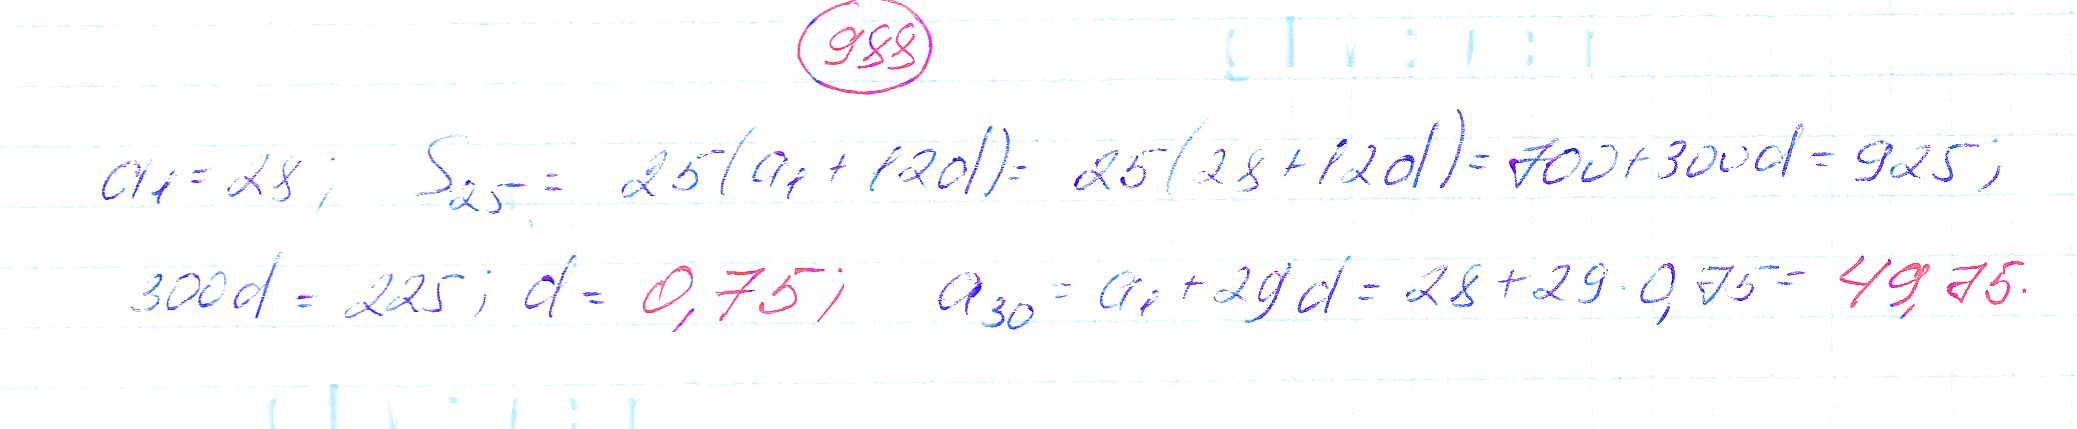 988
a₁ = 28; S₂₅ = 25(a₁ + 12d) = 25(28 + 12d) = 700 + 300d = 925;
300d = 225; d = 0,75; a₃₀ = a₁ + 29d = 28 + 29 · 0,75 = 49,75.